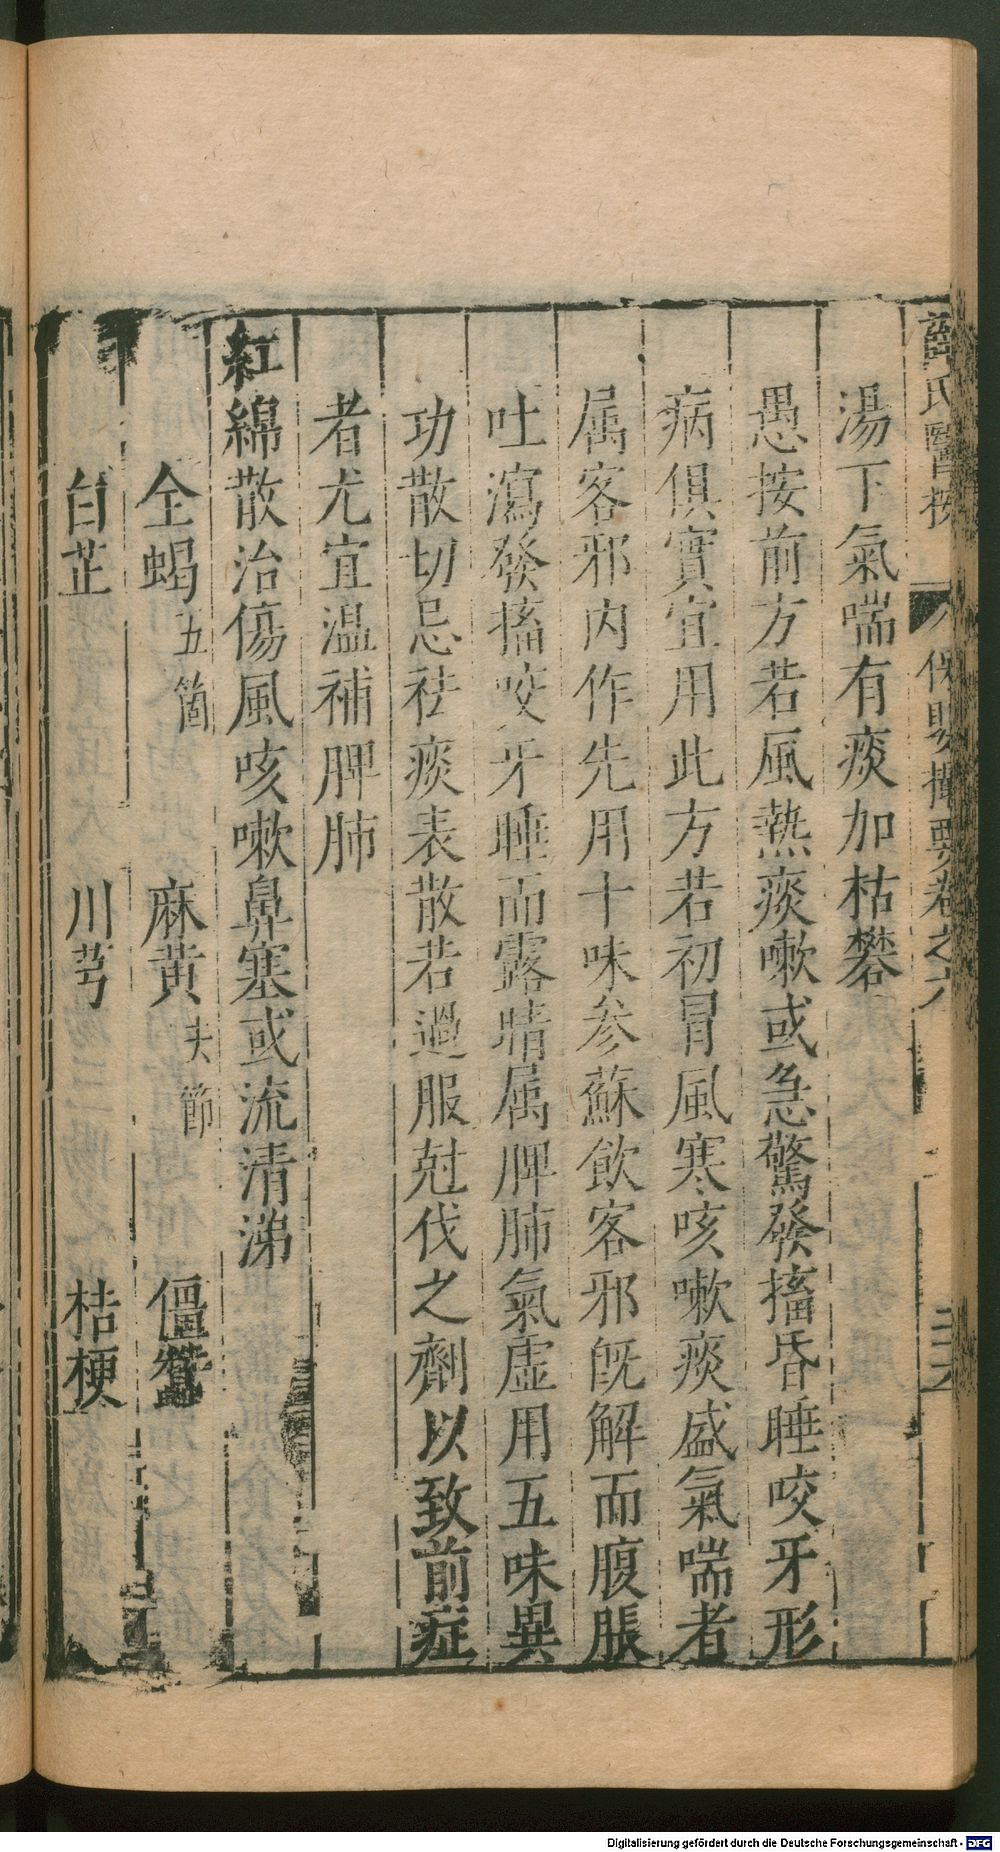 薛氏醫按 保嬰撮要卷之六 三六
湯下氣喘有痰加枯礬
愚按前方若風熱痰嗽或急驚發搐昏睡咬牙形
病俱實宜用此方若初冒風寒咳嗽痰盛氣喘者
属客邪内作先用十味参蘇飲客邪既解而腹脹
吐瀉發搐咬牙睡而露睛属脾肺氣虚用五味異
功散切忌祛痰表散若過服尅伐之劑以致前症
者尤宜温補脾肺
紅綿散治傷風咳嗽鼻塞或流清涕
全蝎五箇 麻黄去節 僵蠶
白芷 川芎 桔梗
Digitalisierung gefördert durch die Deutsche Forschungsgemeinschaft - DFG